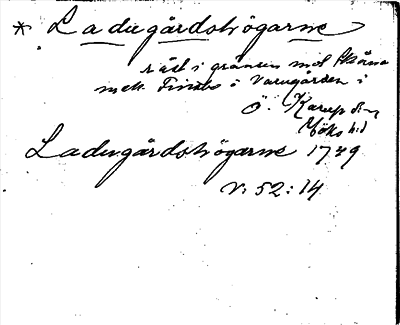 * Ladugårdshögarne
råst i gränsen mot Skåne
mell. Finabo o Varugården i
Ö. Karup sn
Höks hd
Ladugårdshögarne 1749
V: 52: 14